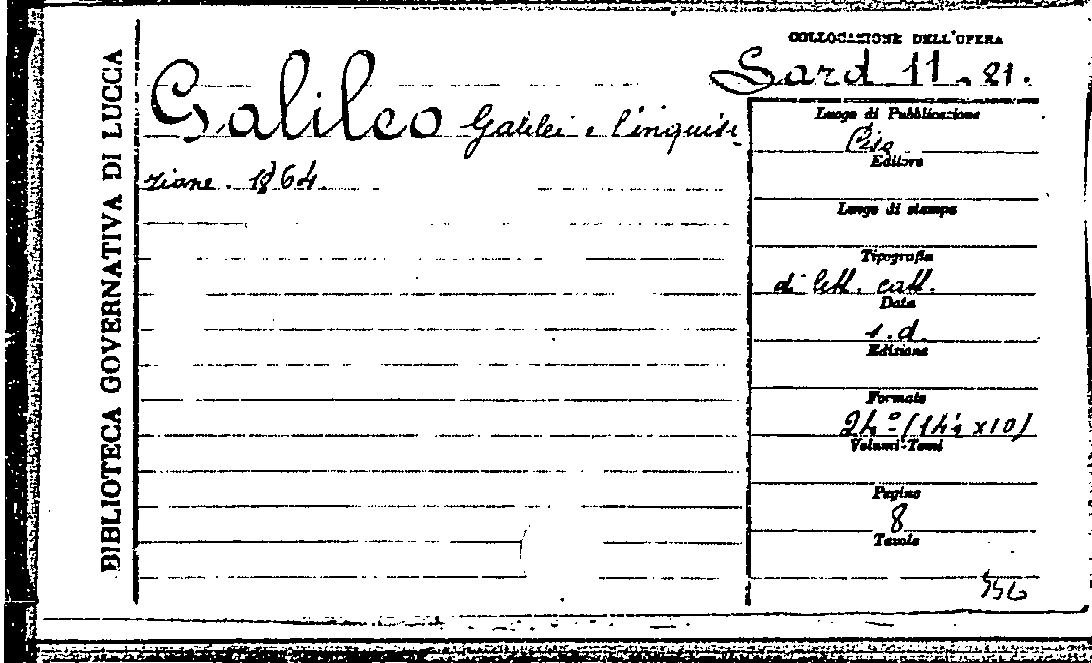 BIBLIOTECA GOVERNATIVA DI LUCCA
COLLOCAZIONE DELL'OPERA
Sard 11. 21.
Galileo Galilei e l'inquisi
zione. 1864.
Luogo di Pubblicazione
Pisa
Editore
Luogo di stampa
Tipografia
di lett. catt.
Data
s.d.
Edizione
Formato
24° (14½ x10)
Volumi-Tomi
Pagine
8
Tavole